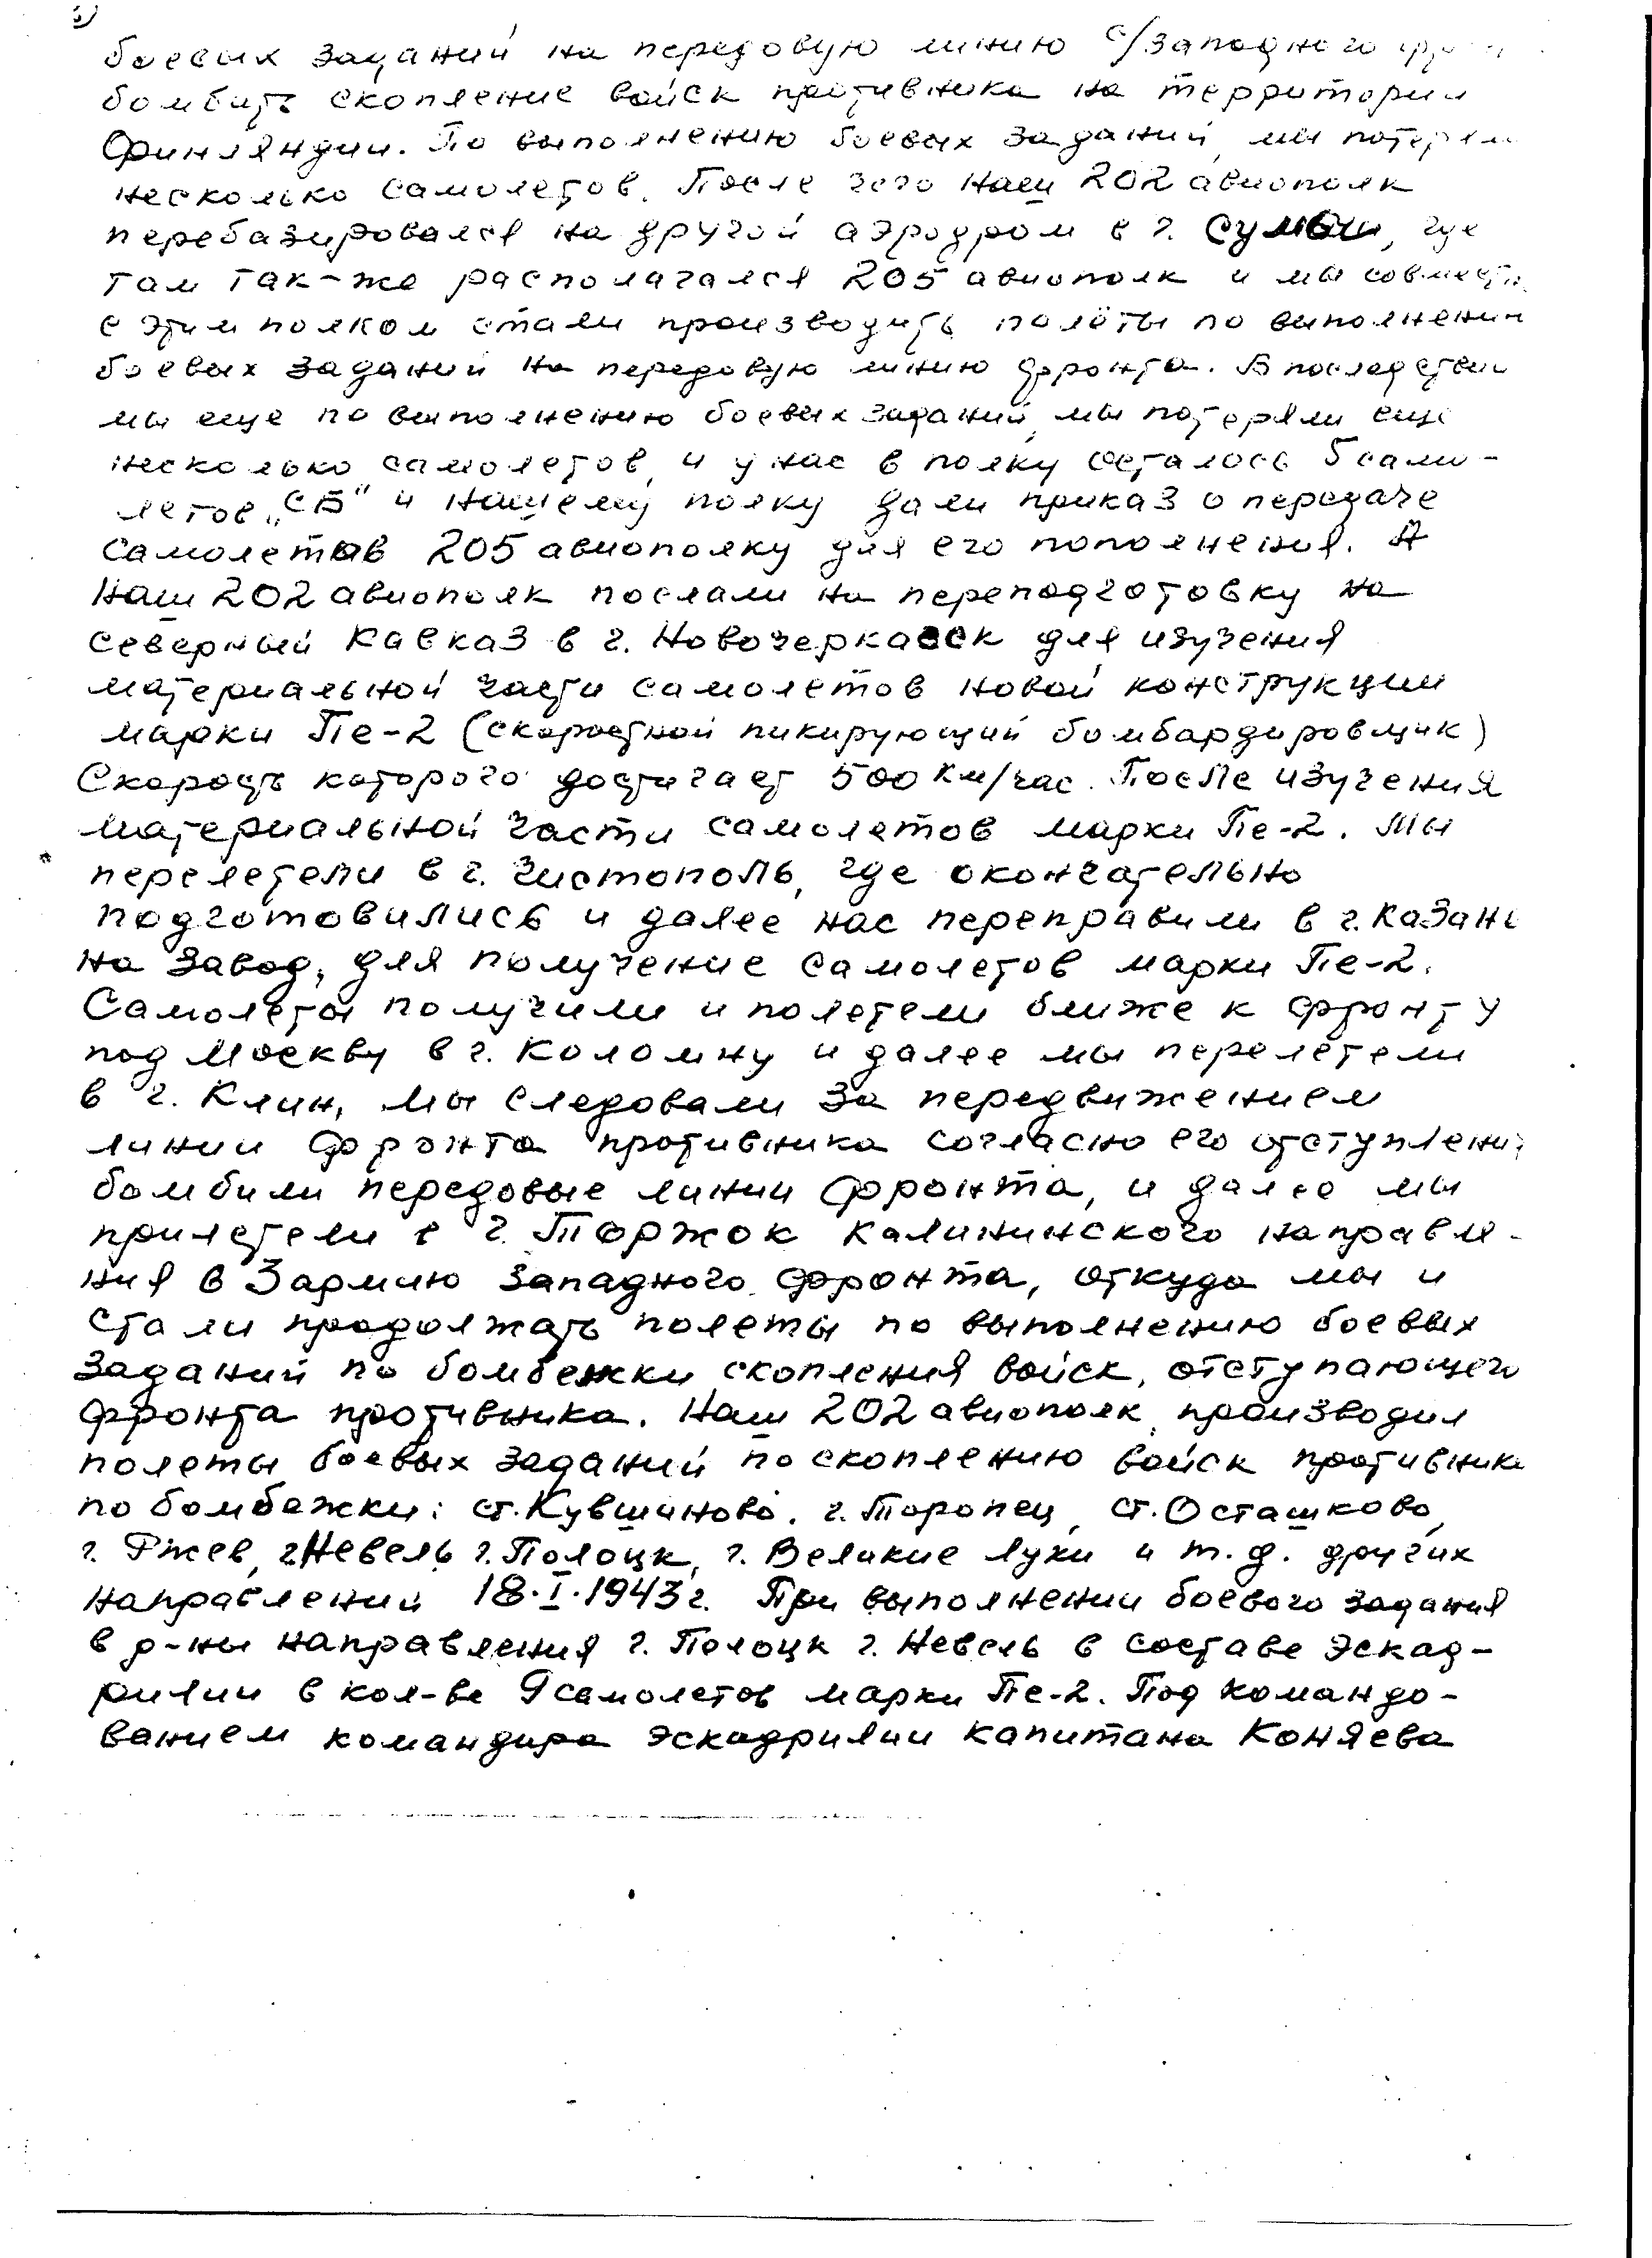 боевых заданий на передовую линию с/западного
бомбить скопление войск противника на территории
Финляндии. По выполнению боевых заданий, мы потеряли
несколько самолетов. После чего наш 202 авиополк
перебазировался на другой аэродром в г. Сумы, где
там так-же располагался 205 авиополк и мы совместно
с этим полком стали производить полёты по выполнению
боевых заданий на передовую линию фронта. В последствии
мы еще по выполнению боевых заданий, мы потеряли еще
несколько самолетов, и у нас в полку осталось 5 само-
летов „СБ" и нашему полку дали приказ о передаче
самолетов 205 авиополку для его пополнения. А
наш 202 авиополк послали на переподготовку на
северный Кавказ в г. Новочеркасск для изучения
материальной части самолётов новой конструкции
марки Пе-2 (скоростной пикирующий бомбардировщик)
Скорость которого достигает 500 км/час. После изучения
материальной части самолетов марки Пе-2. Мы
перелетели в г. Чистополь, где окончательно
подготовились и далее нас переправили в г. Казань
на завод, для получение самолетов марки Пе-2.
Самолеты получили и полетели ближе к фронту
под Москву в г. Коломну и далее мы перелетели
в г. Клин, мы следовали за передвижением
линии фронта противника согласно его отступления
бомбили передовые линии фронта, и далее мы
прилетели в г. Торжок Калининского направле-
ния в 3 армию западного фронта, откуда мы и
стали продолжать полеты по выполнению боевых
заданий по бомбежки скопления войск, отступающего
фронта противника. Наш 202 авиополк, производил
полеты боевых заданий по скоплению войск противника
по бомбежки: ст. Кувшиново. г. Торопец, ст. Осташково,
г. Ржев, г. Невель, г. Полоцк, г. Великие Луки и т. д. других
направлений 18.I.1943г. При выполнении боевого задания
в р-ны направления г. Полоцк г. Невель в составе эскад-
рилии в кол-ве 9 самолетов марки Пе-2. Под командо-
ванием командира эскадрилии капитана Коняева